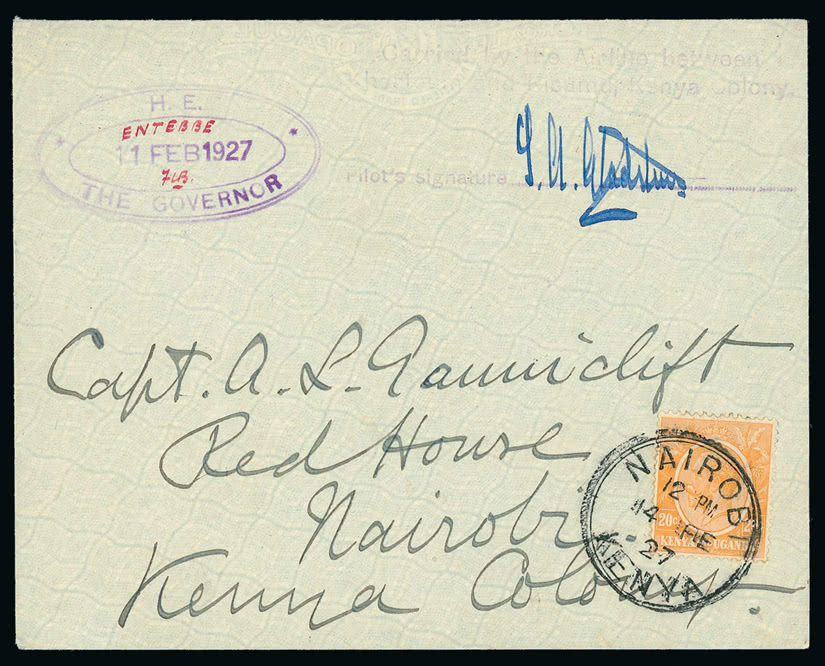 Carried by the Airline between
and Kisumu, Kenya Colony.
H. E.
ENTEBBE
11 FEB 1927
THE GOVERNOR
Pilot's signature T. A. Gladstone
Capt. A. L. Gauniclift
Red House
Nairobi
Kenya Colony.
NAIROBI
12 PM
14 FE
27
KENYA
20c
KENYA UGANDA